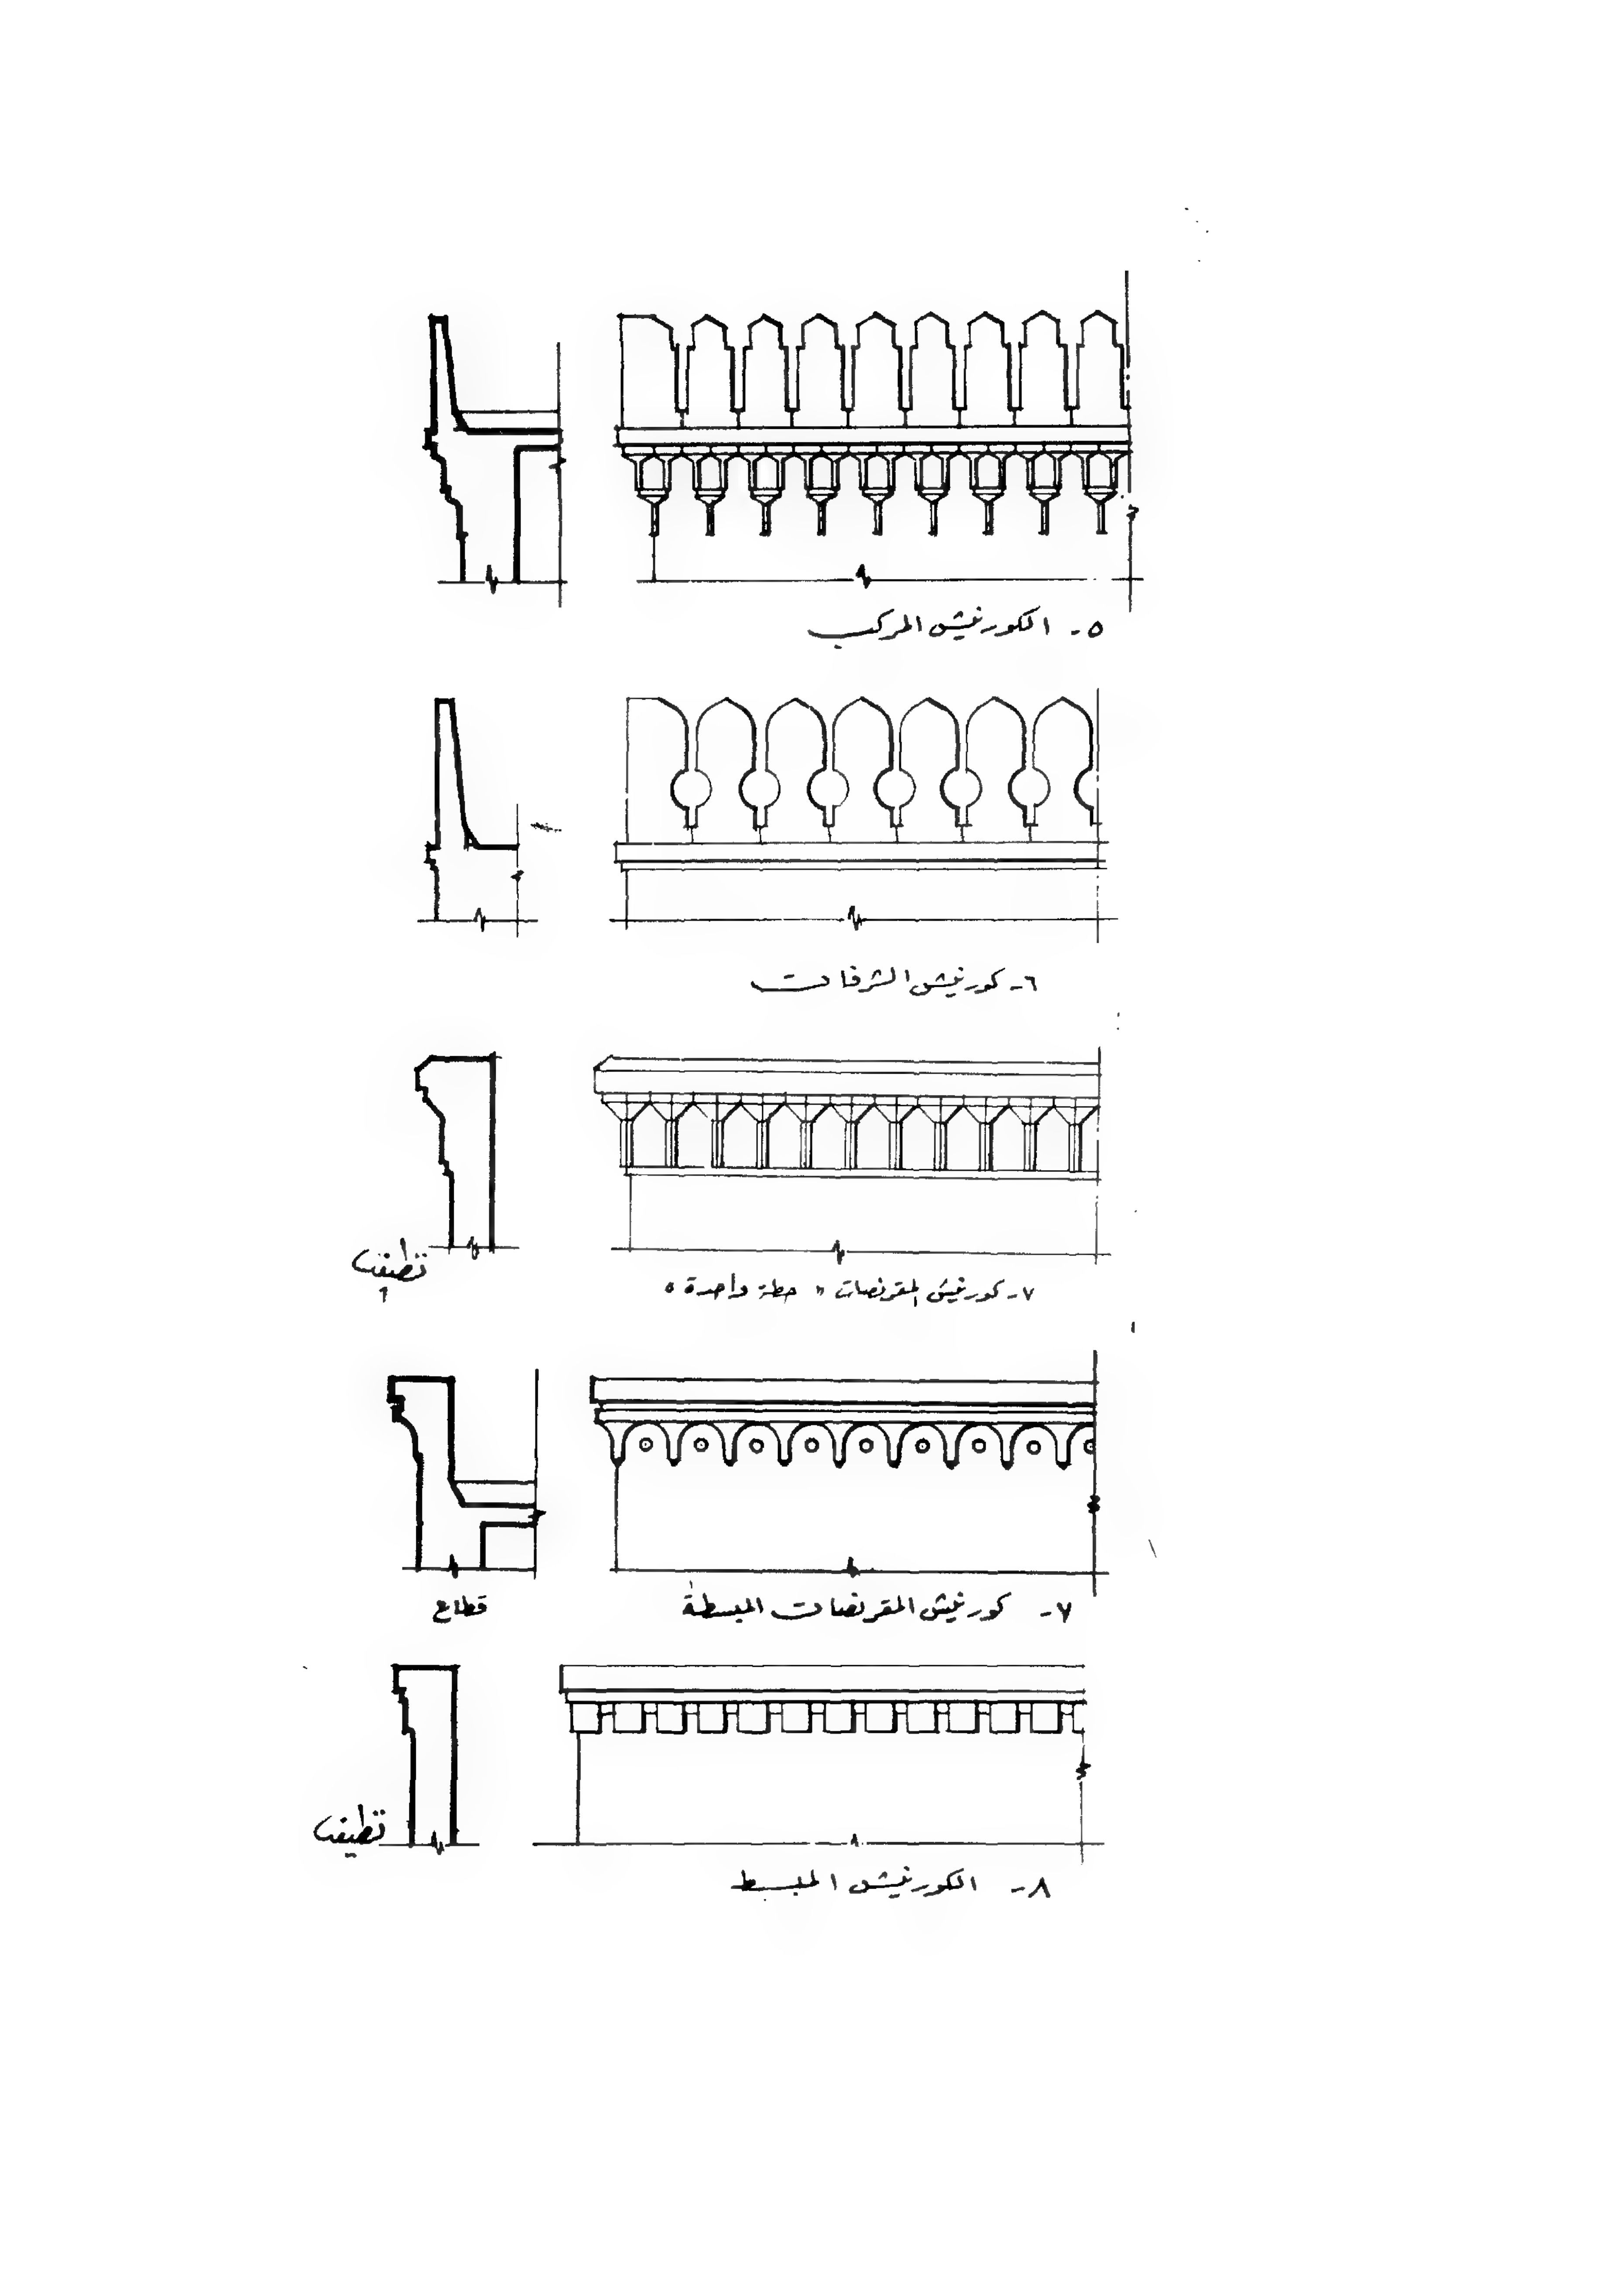 ٥- الكورنيش المركب
٦- كورنيش الشرفات
٧- كورنيش المقرنصات " حطة واحدة "
٧- كورنيش المقرنصات المبسطة
قطاع
٨- الكورنيش المبسط